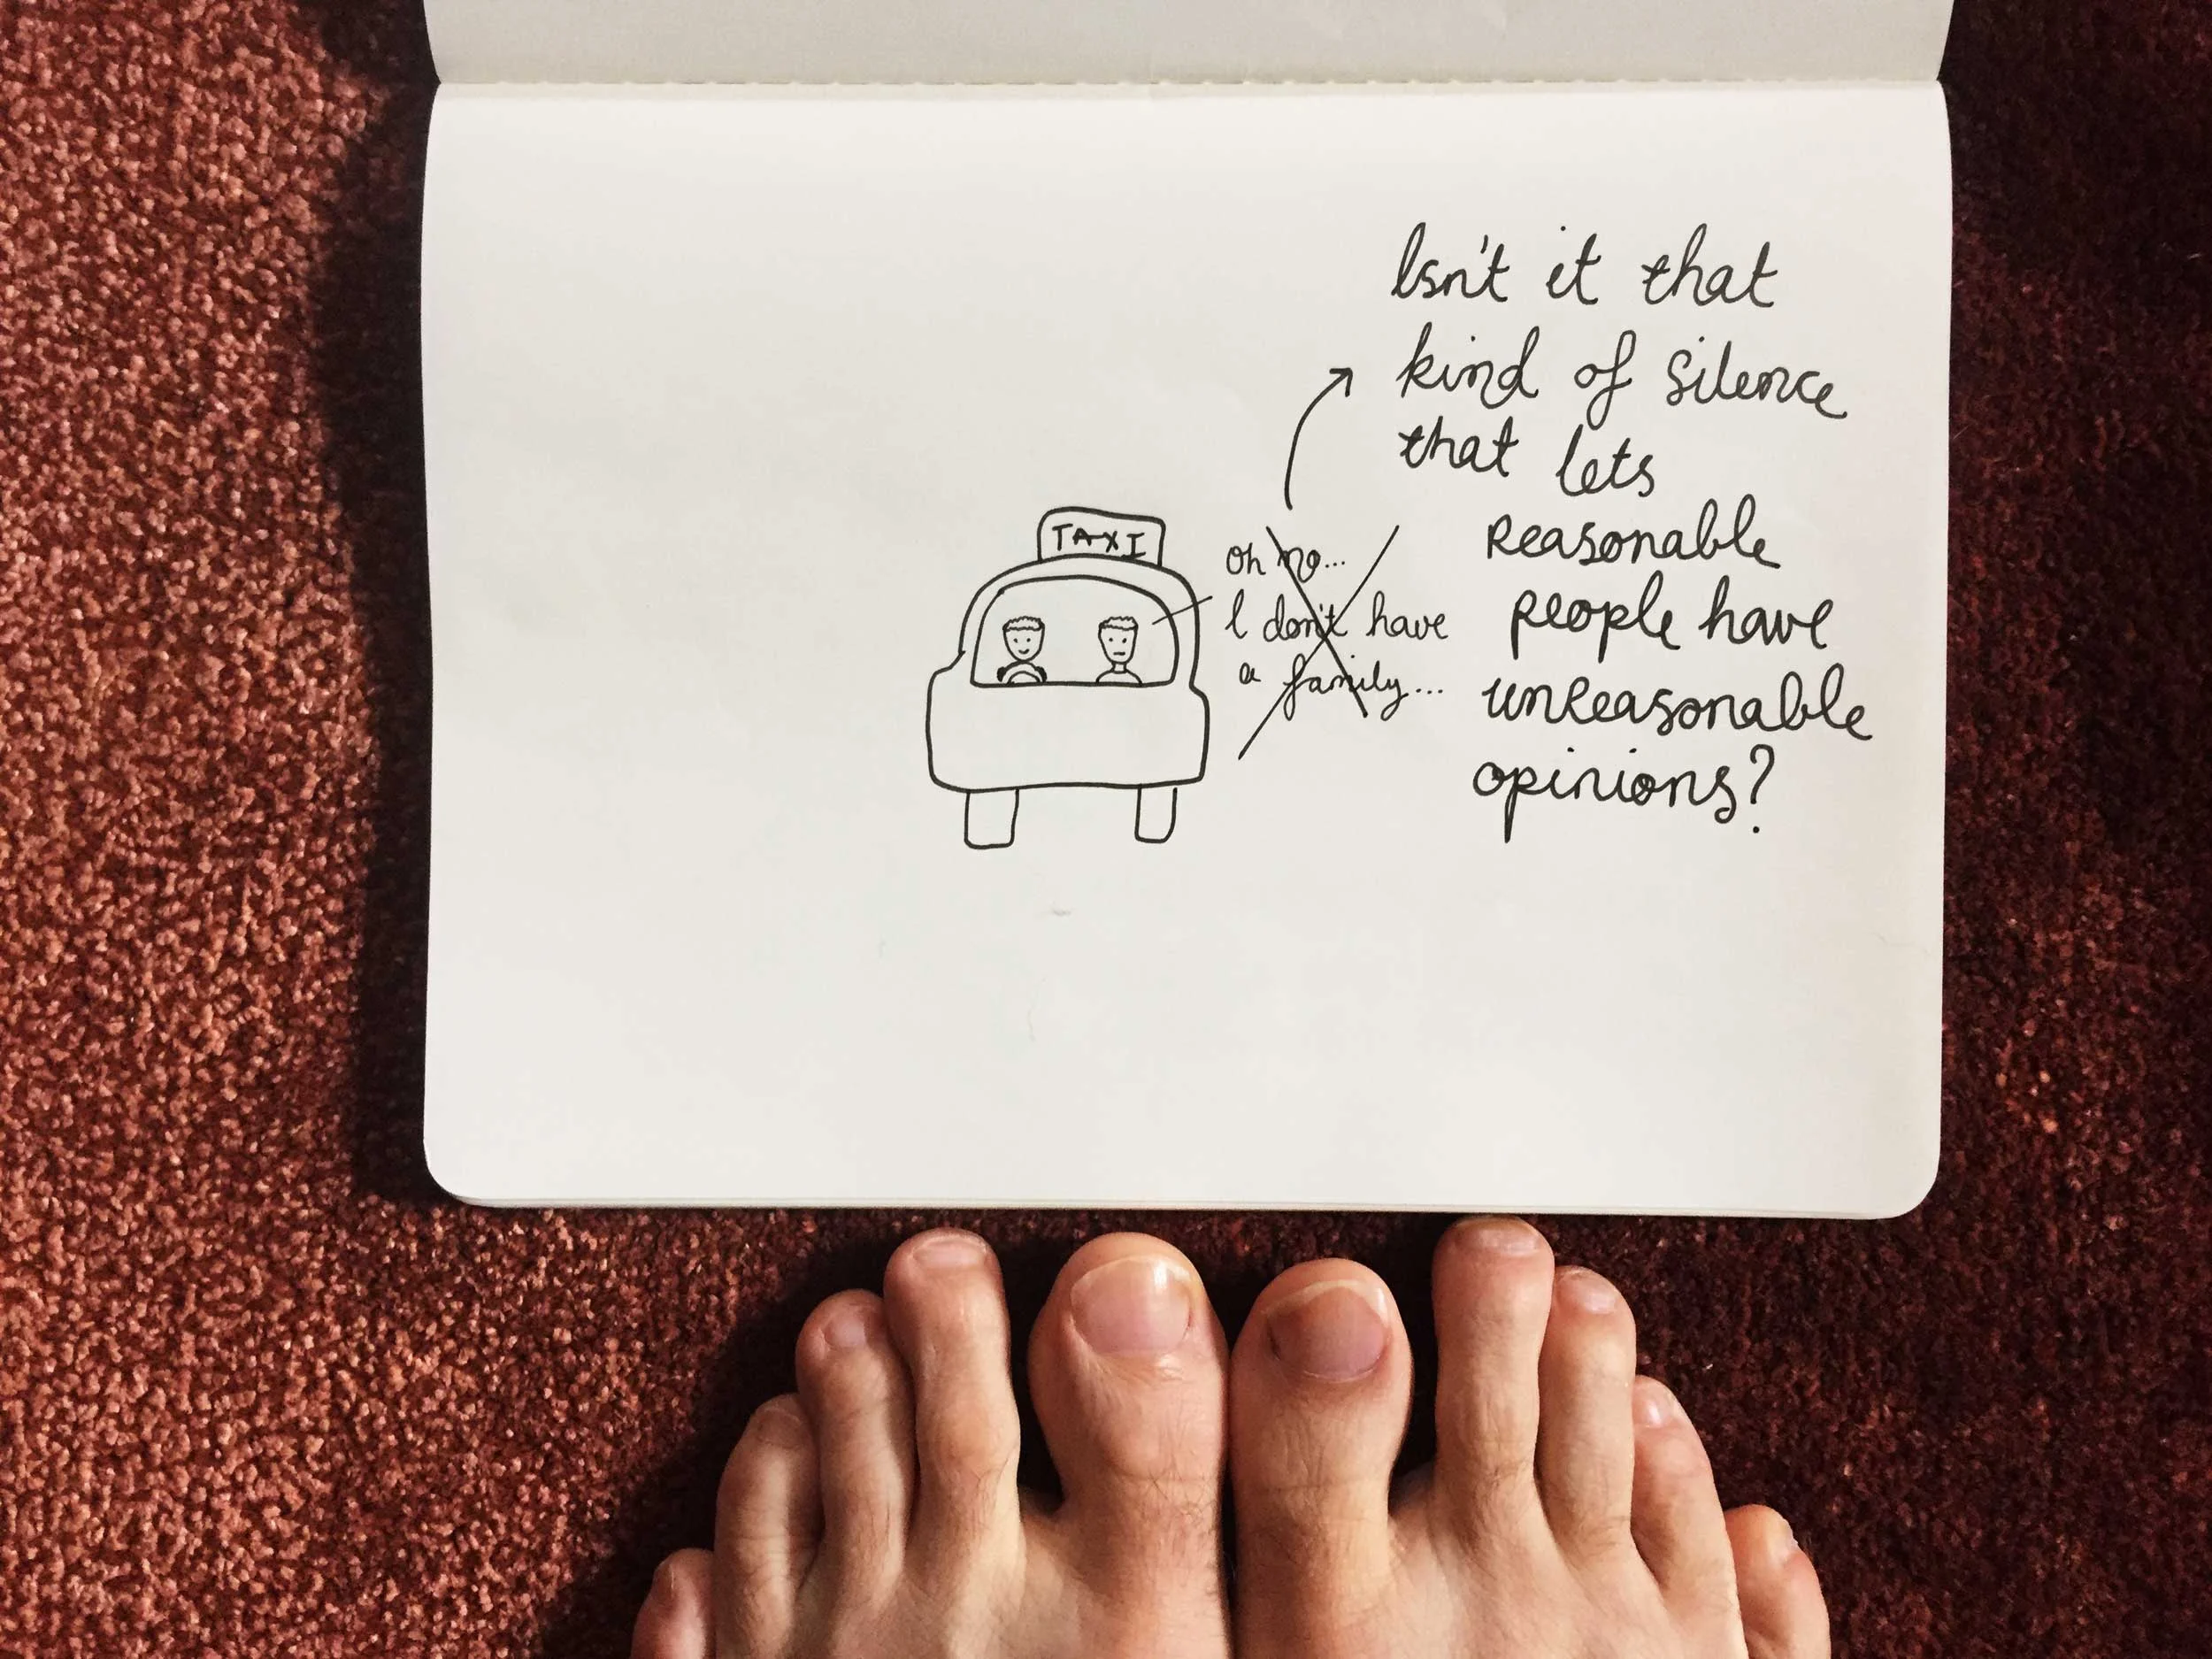 Isn't it that
kind of silence
that lets
reasonable
people have
unreasonable
opinions?
TAXI
oh no...
I don't have
a family...